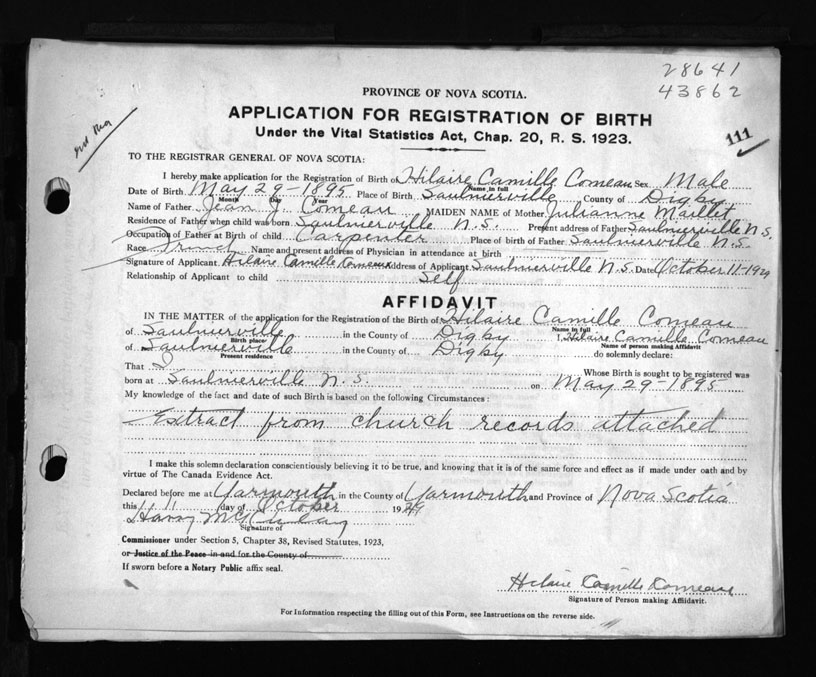 28641
PROVINCE OF NOVA SCOTIA.
43862
APPLICATION FOR REGISTRATION OF BIRTH
Under the Vital Statistics Act, Chap. 20, R. S. 1923.
111
TO THE REGISTRAR GENERAL OF NOVA SCOTIA:
I hereby make application for the Registration of Birth of Hilaire Camille Comeau Sex Male
Name in full
Date of Birth May 29-1895 Place of Birth Saulnierville County of Digby
Month Day Year
Name of Father Jean J. Comeau MAIDEN NAME of Mother Julianne Maillet
Residence of Father when child was born Saulnierville N.S. Present address of Father Saulnierville N.S.
Occupation of Father at Birth of child Carpenter Place of birth of Father Saulnierville N.S.
Race French Name and present address of Physician in attendance at birth
Signature of Applicant Hilaire Camille Comeau Address of Applicant Saulnierville N.S. Date October 11-1929
Relationship of Applicant to child Self
AFFIDAVIT
IN THE MATTER of the application for the Registration of the Birth of Hilaire Camille Comeau
Name in full
of Saulnierville in the County of Digby I, Hilaire Camille Comeau
Birth place Name of person making Affidavit
of Saulnierville in the County of Digby do solemnly declare:
Present residence
That I Whose Birth is sought to be registered was
born at Saulnierville N.S. on May 29-1895
My knowledge of the fact and date of such Birth is based on the following Circumstances:
Extract from church records attached
I make this solemn declaration conscientiously believing it to be true, and knowing that it is of the same force and effect as if made under oath and by
virtue of The Canada Evidence Act.
Declared before me at Yarmouth in the County of Yarmouth and Province of Nova Scotia
this 11 day of October 1929
Harry
Signature of
Commissioner under Section 5, Chapter 38, Revised Statutes, 1923,
or Justice of the Peace in and for the County of
If sworn before a Notary Public affix seal.
Hilaire Camille Comeau
Signature of Person making Affidavit.
For Information respecting the filling out of this Form, see Instructions on the reverse side.